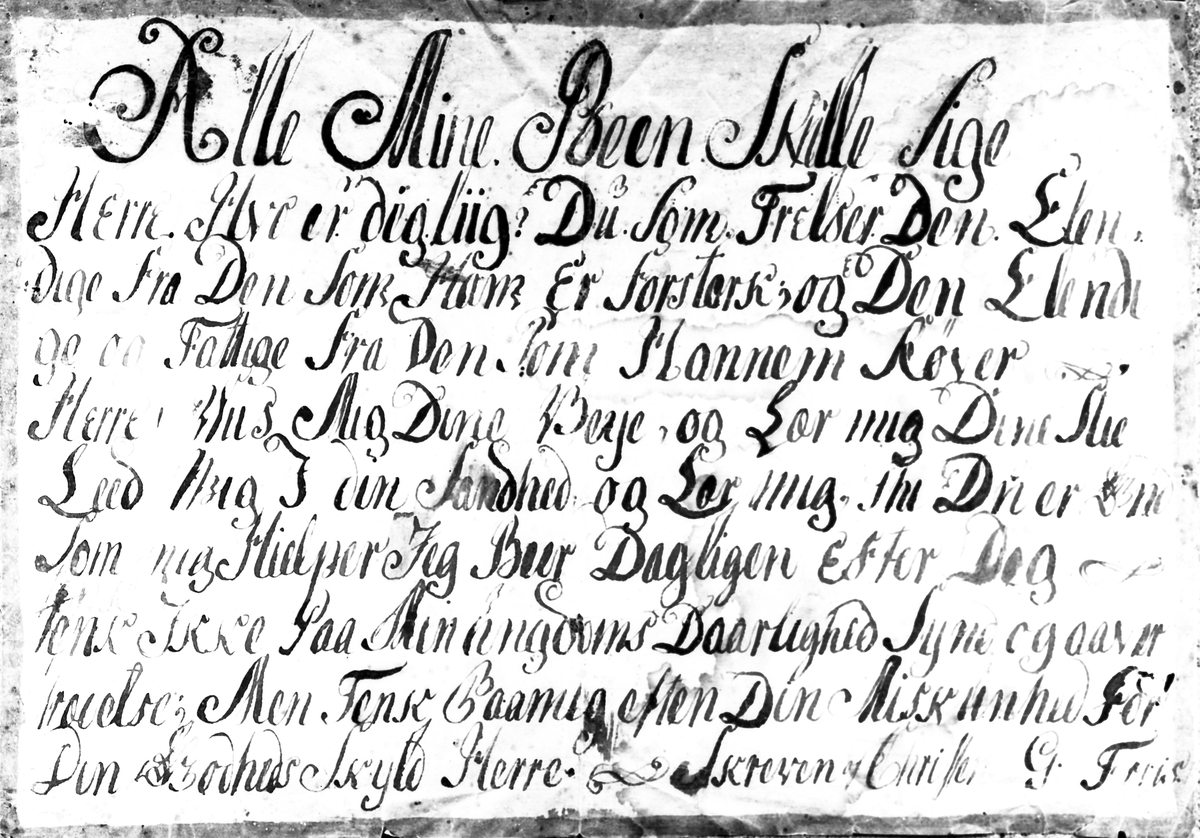 Alle Mine Been Skulle Sige
Herre Hvo er dig liig? Du Som Frelser Den Elen,
dige fra Den Som Ham Er forstærk, og Den Elendi
ge og Fattige fra Den Som Hannem Røver
Herre Viis Mig Dine Veye, og Lær mig Dine Stie
Leed Mig I din Sandhed og Lær mig, thi Du er
Som mig Hielper Jeg Beer Dagligen Efter Dog
tenk Ikke Paa Min ungdoms Daarlighed Synd og aaver
træelse, Men Tenk Paa mig eften Din Miskunhed For
Din Godheds Skyld Herre Skreven af Christen G: